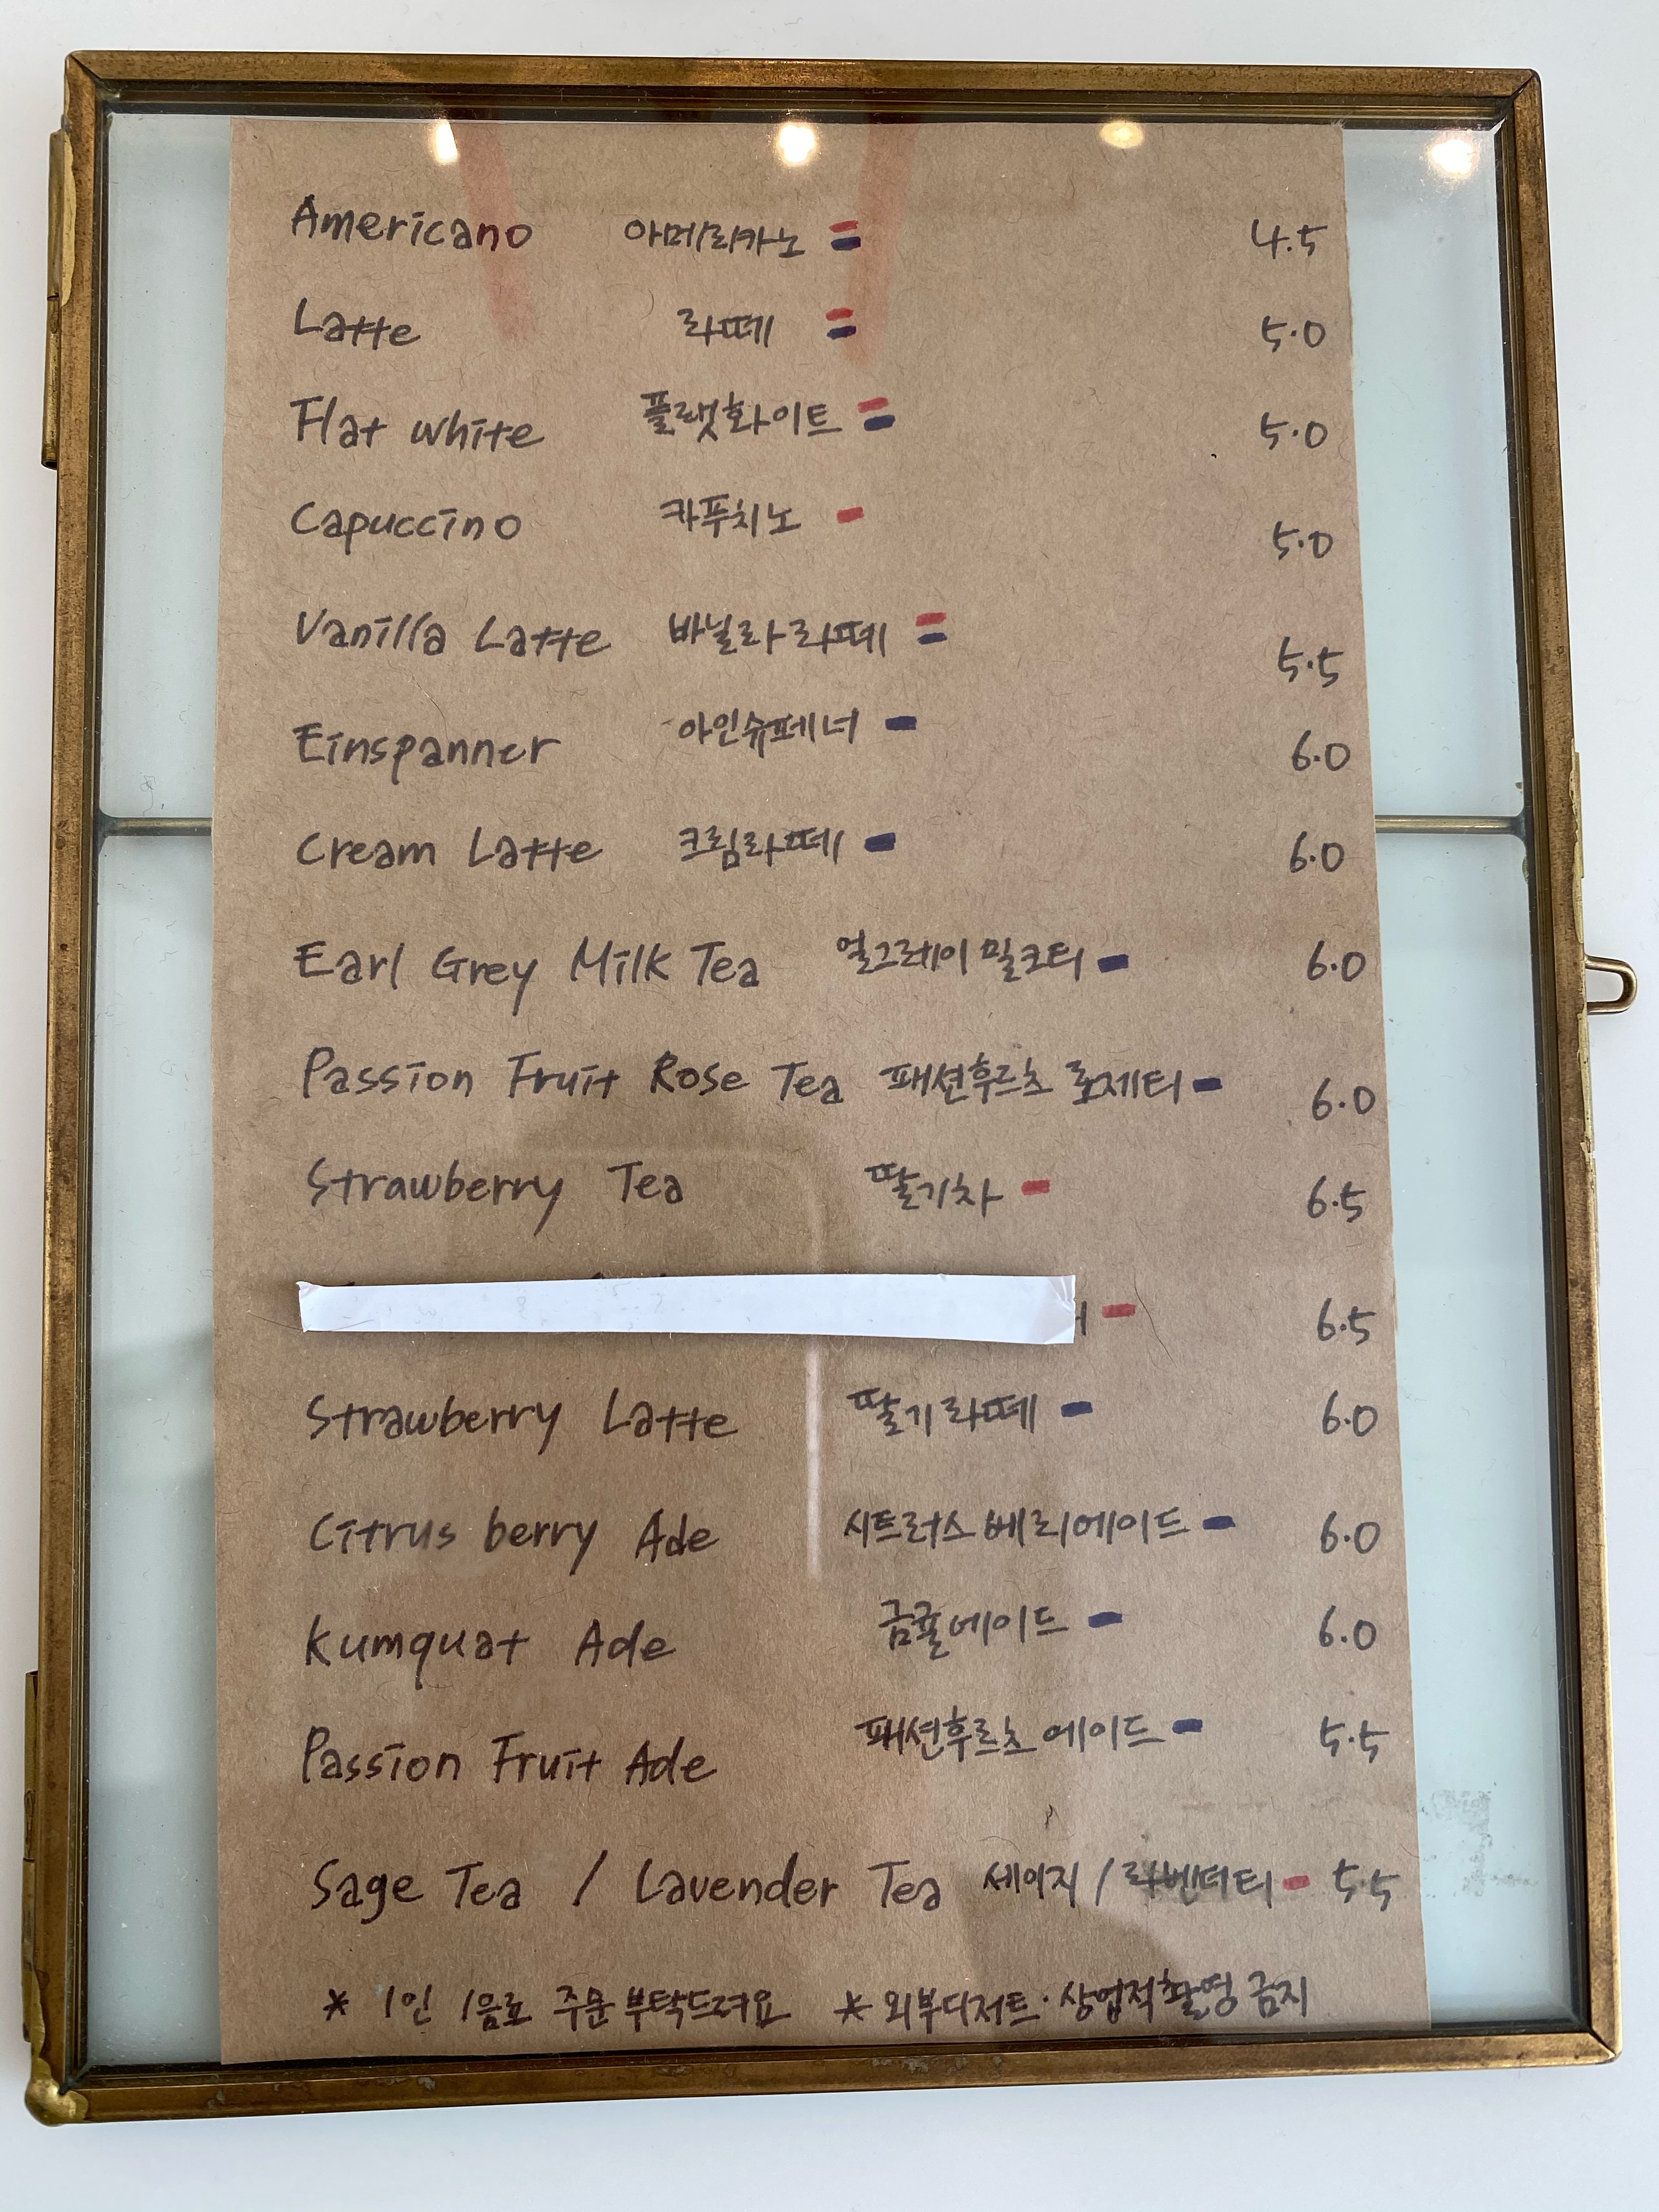 Americano 아메리카노 4.5
Latte 라떼 5.0
Flat white 플랫화이트 5.0
Capuccino 카푸치노 5.0
Vanilla Latte 바닐라라떼 5.5
Einspanner 아인슈페너 6.0
Cream Latte 크림라떼 6.0
Earl Grey Milk Tea 얼그레이 밀크티 6.0
Passion Fruit Rose Tea 패션후르츠 로제티 6.0
Strawberry Tea 딸기차 6.5
6.5
Strawberry Latte 딸기라떼 6.0
Citrus berry Ade 시트러스베리에이드 6.0
Kumquat Ade 금귤에이드 6.0
Passion Fruit Ade 패션후르츠 에이드 5.5
Sage Tea / Lavender Tea 세이지 / 라벤더티 5.5
* 1인 1음료 주문 부탁드려요 * 외부디저트·상업적촬영 금지